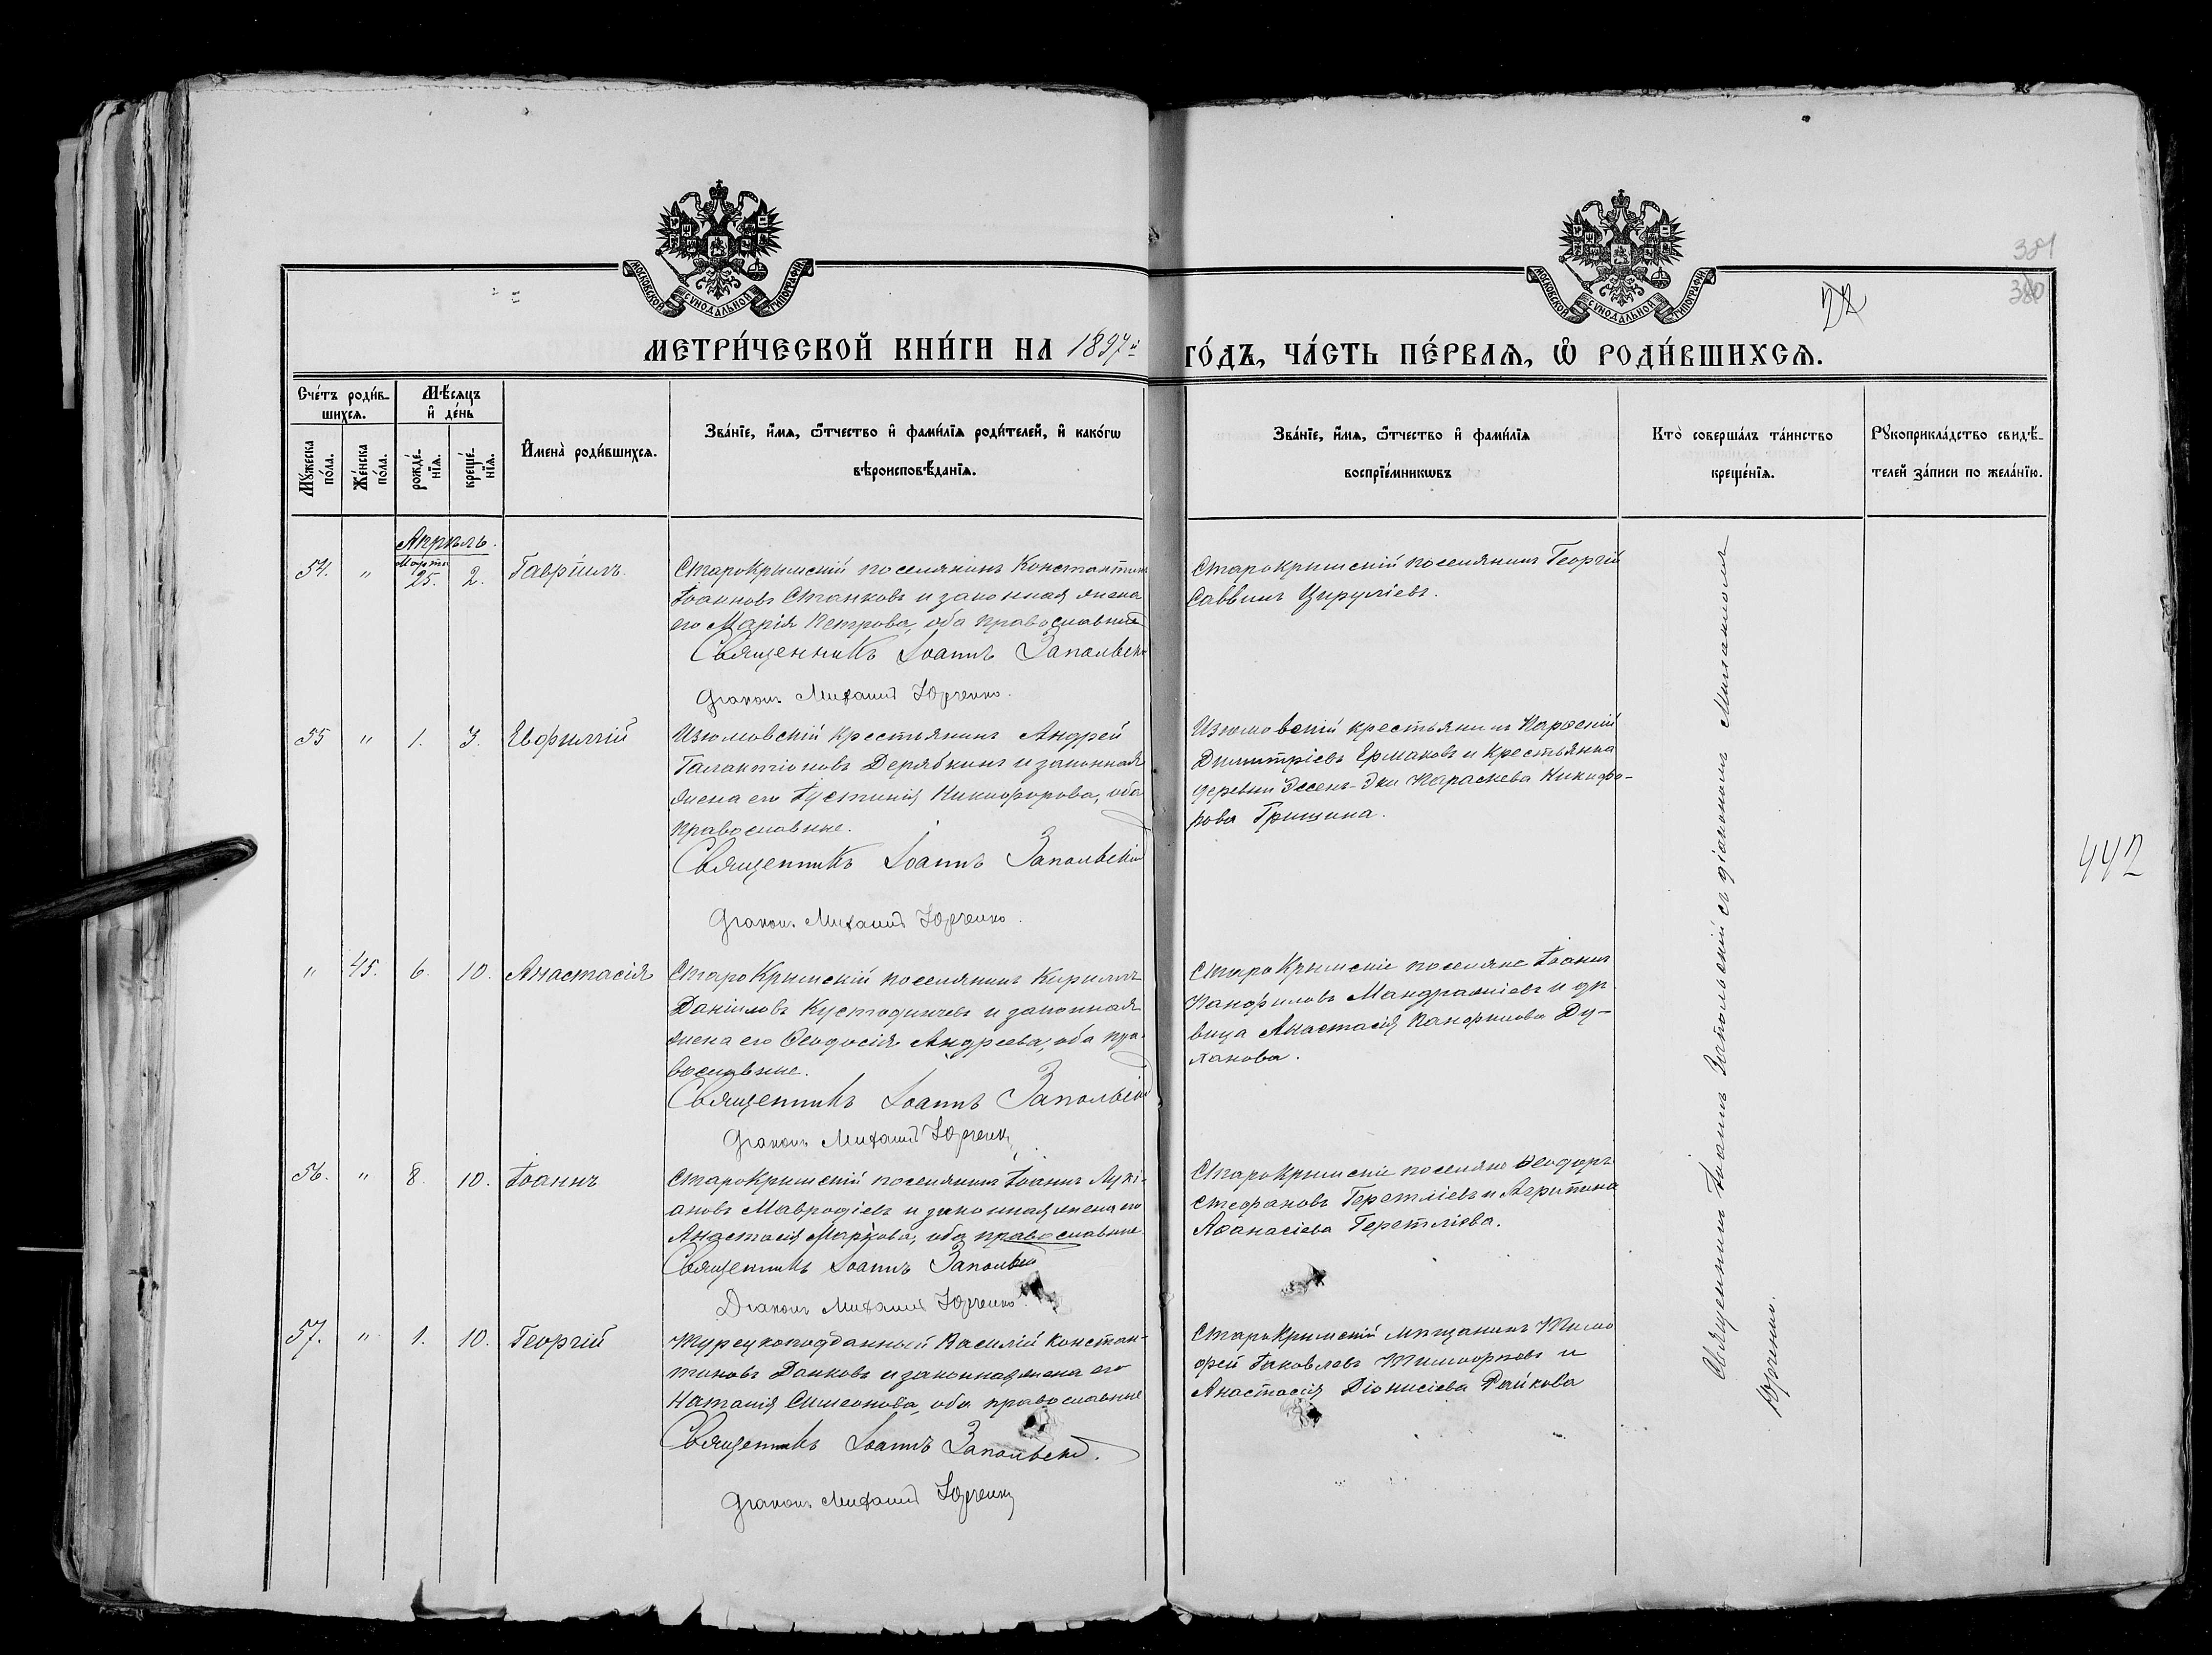 МОСКОВСКОЙ СѴНОДАЛЬНОЙ ТИПОГРАФІИ
МОСКОВСКОЙ СѴНОДАЛЬНОЙ ТИПОГРАФІИ
381
380
22
МЕТРИ́ЧЕСКОЙ КНИ́ГИ НА 1897й ГО́ДЪ, ЧА́СТЬ ПЕ́РВАЯ, Ѡ РОДИ́ВШИХСЯ.
Сче́тъ роди́в-
шихся.
Мѣ́сяцъ
и де́нь
Мꙋ́жеска
по́ла.
Же́нска
по́ла.
рожде́-
нїя.
креще́-
нїя.
Имена̀ роди́вшихся.
Зва́нїе, и́мя, ѻ́тчество и фами́лїя роди́телей, и како́гѡ
вѣроисповѣ́данїя.
Зва́нїе, и́мя, ѻ́тчество и фами́лїя
воспрїе́мникѡвъ
Кто̀ соверша́лъ та́инство
креще́нїя.
Рꙋкоприкла́дство свидѣ́-
телей за́писи по жела́нїю.
Апрѣль.
54. " Марта 25. 2. Гавріилъ
СтароКрымскій поселянинъ Константинъ
Іоанновъ Станковъ и законная жена
его Марія Петрова, оба православные
Священникъ Іоаннъ Запольскій
Діаконъ Михаилъ Юрченко.
СтароКрымскій поселянинъ Георгій
Саввинъ Цируліевъ.
55 " 1. 3. Евфимій
Изюмовскій крестьянинъ Андрей
Галактіоновъ Дерябкинъ и законная
жена его Іустинія Никифорова, оба
православные.
Священникъ Іоаннъ Запольскій
Діаконъ Михаилъ Юрченко.
Изюмовскій крестьянинъ
Димитріевъ Ермаковъ и крестьянка
деревни Эссенъ-Эки Параскева Никифо-
рова Грищина.
" 45. 6. 10. Анастасія
СтароКрымскій поселянинъ Кириллъ
Даніиловъ Кустодинчевъ и законная
жена его Ѳеодосія Андреева, оба пра-
вославные.
Священникъ Іоаннъ Запольскій
Діаконъ Михаилъ Юрченко
СтароКрымскіе поселяне Іоаннъ
Панфиловъ Мандражіевъ и дѣ-
вица Анастасія Панфилова Ду-
ланова.
56. " 8. 10. Іоаннъ
СтароКрымскій поселянинъ Іоаннъ Лукі-
ановъ Мавродіевъ и законная жена его
Анастасія Маркова, оба православные
Священникъ Іоаннъ Запольскій
Діаконъ Михаилъ Юрченко
СтароКрымскіе поселяне Ѳеодоръ
Стефановъ Геретліевъ и Агрипина
Аѳанасіева Геретліева.
57. " 1. 10. Георгій
Турецкоподданный Василій Констан-
тиновъ Донковъ и законная жена его
Наталія Симеонова, оба православные
Священникъ Іоаннъ Запольскій.
Діаконъ Михаилъ Юрченко
СтароКрымскій мѣщанинъ Тимо
фей Іаковлевъ и
Анастасія Діонисіева Райкова
Священникъ Іоаннъ Запольскій съ діакономъ Михаиломъ
Юрченко.
442